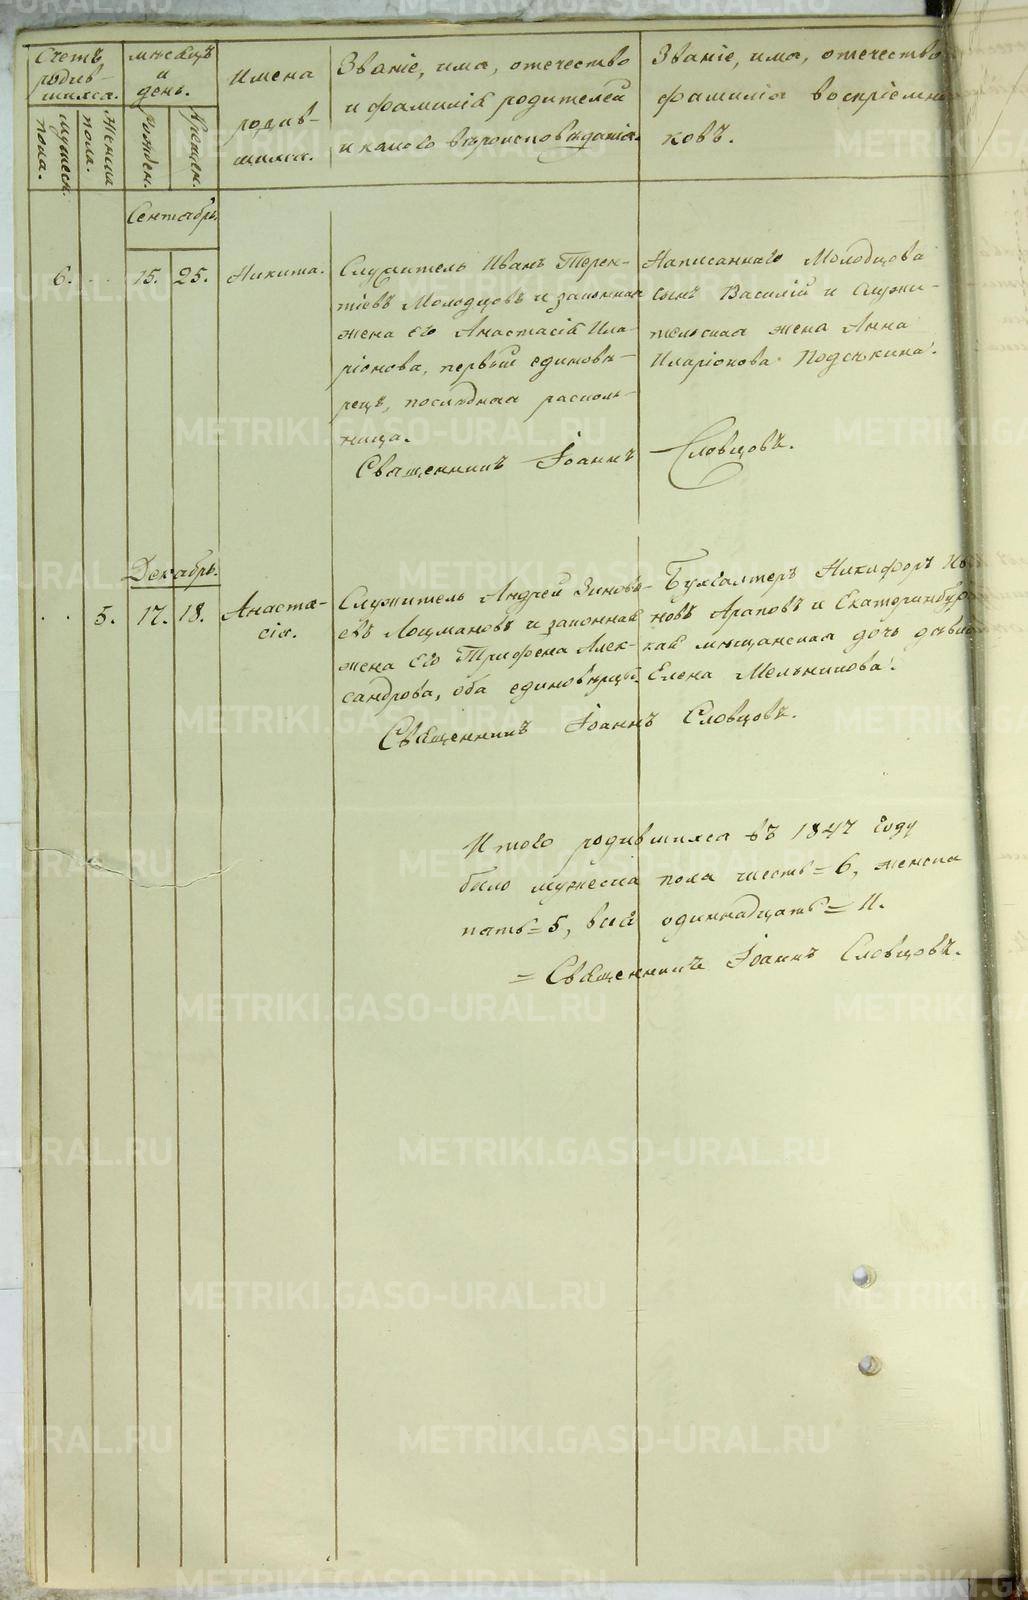 Счетъ родив-
шихся.
Мужеск. пола.
Женска пола.
мѣсяцъ
и
день.
Рожден.
Крещен.
Имена
родив-
шихся.
Званіе, има, отечество
и фамилія родителей
и какого вѣроисповѣданія.
Званіе, има, отечество
фамилія воспріемни
ковъ.
Сентабрь.
6. 15. 25. Никита.
Служитель Иванъ Терен-
тіевъ Молодцовъ и законная
жена его Анастасія Ила-
ріонова, первый единовѣ-
рецъ, последная расколь-
ница.
Написаннаго Молодцова
сынъ Василій и служи-
тельская жена Анна
Иларіонова Подсѣкина.
Священникъ Іоаннъ Словцовъ.
Декабрь.
5. 17. 18. Анаста-
сія.
Служитель Андрей Зиновь-
евъ Лоцмановъ и законная
жена его Трифена Алек-
сандрова, оба единовѣрцы.
Бухгалтеръ Никифоръ
новъ Араповъ и Екатеринбур
кая мѣщанская дочь дѣвиц
Елена Мельникова.
Священникъ Іоаннъ Словцовъ.
Итого родившихся въ 1847 году
было мужеска пола шесть = 6, женска
пять = 5, всѣй одиннадцать = 11.
= Священникъ Іоаннъ Словцовъ.
METRIKI.GASO-URAL.RU